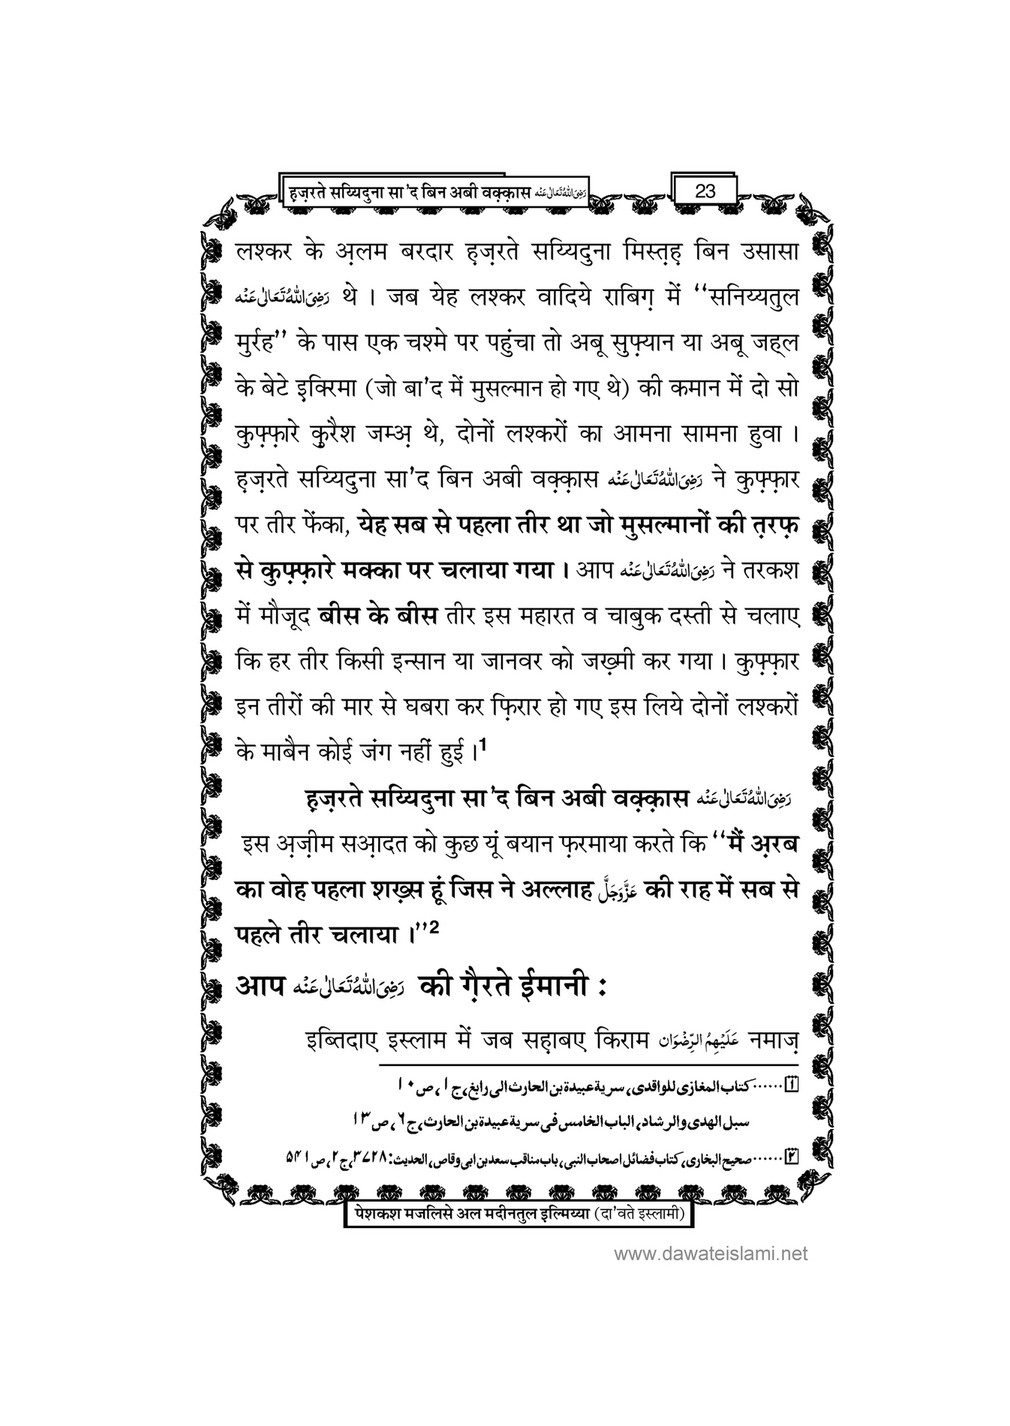 हज़रते सय्यिदुना सा'द बिन अबी वक़्क़ास رَضِیَ اللّٰهُ تَعَالٰی عَنْه
23
लश्कर के अ़लम बरदार ह़ज़रते सय्यिदुना मिस्त़ह़ बिन उसासा
رَضِیَ اللّٰهُ تَعَالٰی عَنْه थे । जब येह लश्कर वादिये राबिग़ में ‘‘सनिय्यतुल
मुर्रह’’ के पास एक चश्मे पर पहुंचा तो अबू सुफ़्यान या अबू जह्ल
के बेटे इ़क्रिमा (जो बा'द में मुसल्मान हो गए थे) की कमान में दो सो
कुफ़्फ़ारे क़ुरैश जम्अ़ थे, दोनों लश्करों का आमना सामना हुवा ।
ह़ज़रते सय्यिदुना सा'द बिन अबी वक़्क़ास رَضِیَ اللّٰهُ تَعَالٰی عَنْه ने कुफ़्फ़ार
पर तीर फेंका, येह सब से पहला तीर था जो मुसल्मानों की त़रफ़
से कुफ़्फ़ारे मक्का पर चलाया गया । आप رَضِیَ اللّٰهُ تَعَالٰی عَنْه ने तरकश
में मौजूद बीस के बीस तीर इस महारत व चाबुक दस्ती से चलाए
कि हर तीर किसी इन्सान या जानवर को जख़्मी कर गया । कुफ़्फ़ार
इन तीरों की मार से घबरा कर फ़िरार हो गए इस लिये दोनों लश्करों
के माबैन कोई जंग नहीं हुई ।1
ह़ज़रते सय्यिदुना सा'द बिन अबी वक़्क़ास رَضِیَ اللّٰهُ تَعَالٰی عَنْه
इस अ़ज़ीम सआ़दत को कुछ यूं बयान फ़रमाया करते कि ‘‘मैं अ़रब
का वोह पहला शख़्स हूं जिस ने अल्लाह عَزَّوَجَلَّ की राह में सब से
पहले तीर चलाया ।’’2
आप رَضِیَ اللّٰهُ تَعَالٰی عَنْه की ग़ैरते ईमानी :
इब्तिदाए इस्लाम में जब सह़ाबए किराम عَلَیْهِمُ الرِّضْوَان नमाज़
1 ......کتاب المغازی للواقدی، سریة عبیدة بن الحارث الی رابغ، ج ۱، ص ۱۰
سبل الهدی والرشاد، الباب الخامس فی سریة عبیدة بن الحارث، ج ۶، ص ۱۳
2 ......صحیح البخاری، کتاب فضائل اصحاب النبی، باب مناقب سعد بن ابی وقاص، الحدیث: ۳۷۲۸، ج ۲، ص ۵۴۱
पेशकश मजलिसे अल मदीनतुल इल्मिय्या (दा'वते इस्लामी)
www.dawateislami.net